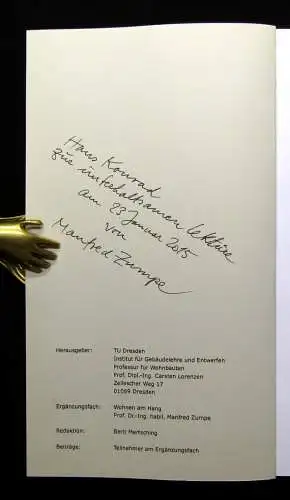 Hans Konrad
zur unterhaltsamen Lektüre
am 23 Januar 2015
von
Manfred Zumpe
Herausgeber: TU Dresden
Institut für Gebäudelehre und Entwerfen
Professur für Wohnbauten
Prof. Dipl.-Ing. Carsten Lorenzen
Zellescher Weg 17
01069 Dresden
Ergänzungsfach: Wohnen am Hang
Prof. Dr.-Ing. habil. Manfred Zumpe
Redaktion: Berit Mertsching
Beiträge: Teilnehmer am Ergänzungsfach